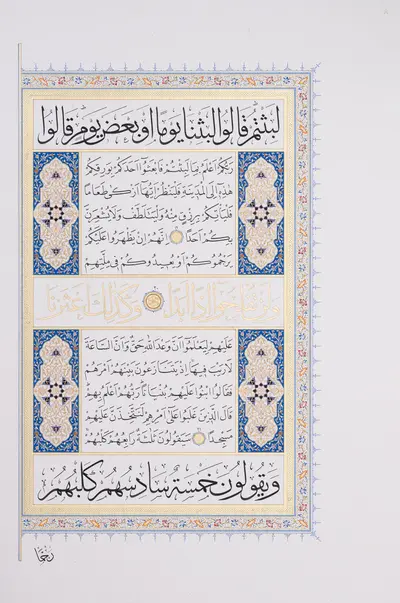 لَبِثْتُمْ قَالُوا لَبِثْنَا يَوْمًا اَوْ بَعْضَ يَوْمٍ قَالُوا
رَبُّكُمْ اَعْلَمُ بِمَا لَبِثْتُمْ فَابْعَثُوا اَحَدَكُمْ بِوَرِقِكُمْ
هٰذِهِ اِلَى الْمَدِينَةِ فَلْيَنْظُرْ اَيُّهَا اَزْكٰى طَعَامًا
فَلْيَأْتِكُمْ بِرِزْقٍ مِنْهُ وَلْيَتَلَطَّفْ وَلَا يُشْعِرَنَّ
بِكُمْ اَحَدًا اِنَّهُمْ اِنْ يَظْهَرُوا عَلَيْكُمْ
يَرْجُمُوكُمْ اَوْ يُعِيدُوكُمْ فِي مِلَّتِهِمْ
وَلَنْ تُفْلِحُوا اِذًا اَبَدًا وَكَذٰلِكَ اَعْثَرْنَا
عَلَيْهِمْ لِيَعْلَمُوا اَنَّ وَعْدَ اللّٰهِ حَقٌّ وَاَنَّ السَّاعَةَ
لَا رَيْبَ فِيهَا اِذْ يَتَنَازَعُونَ بَيْنَهُمْ اَمْرَهُمْ
فَقَالُوا ابْنُوا عَلَيْهِمْ بُنْيَانًا رَبُّهُمْ اَعْلَمُ بِهِمْ
قَالَ الَّذِينَ غَلَبُوا عَلٰى اَمْرِهِمْ لَنَتَّخِذَنَّ عَلَيْهِمْ
مَسْجِدًا سَيَقُولُونَ ثَلٰثَةٌ رَابِعُهُمْ كَلْبُهُمْ
وَيَقُولُونَ خَمْسَةٌ سَادِسُهُمْ كَلْبُهُمْ